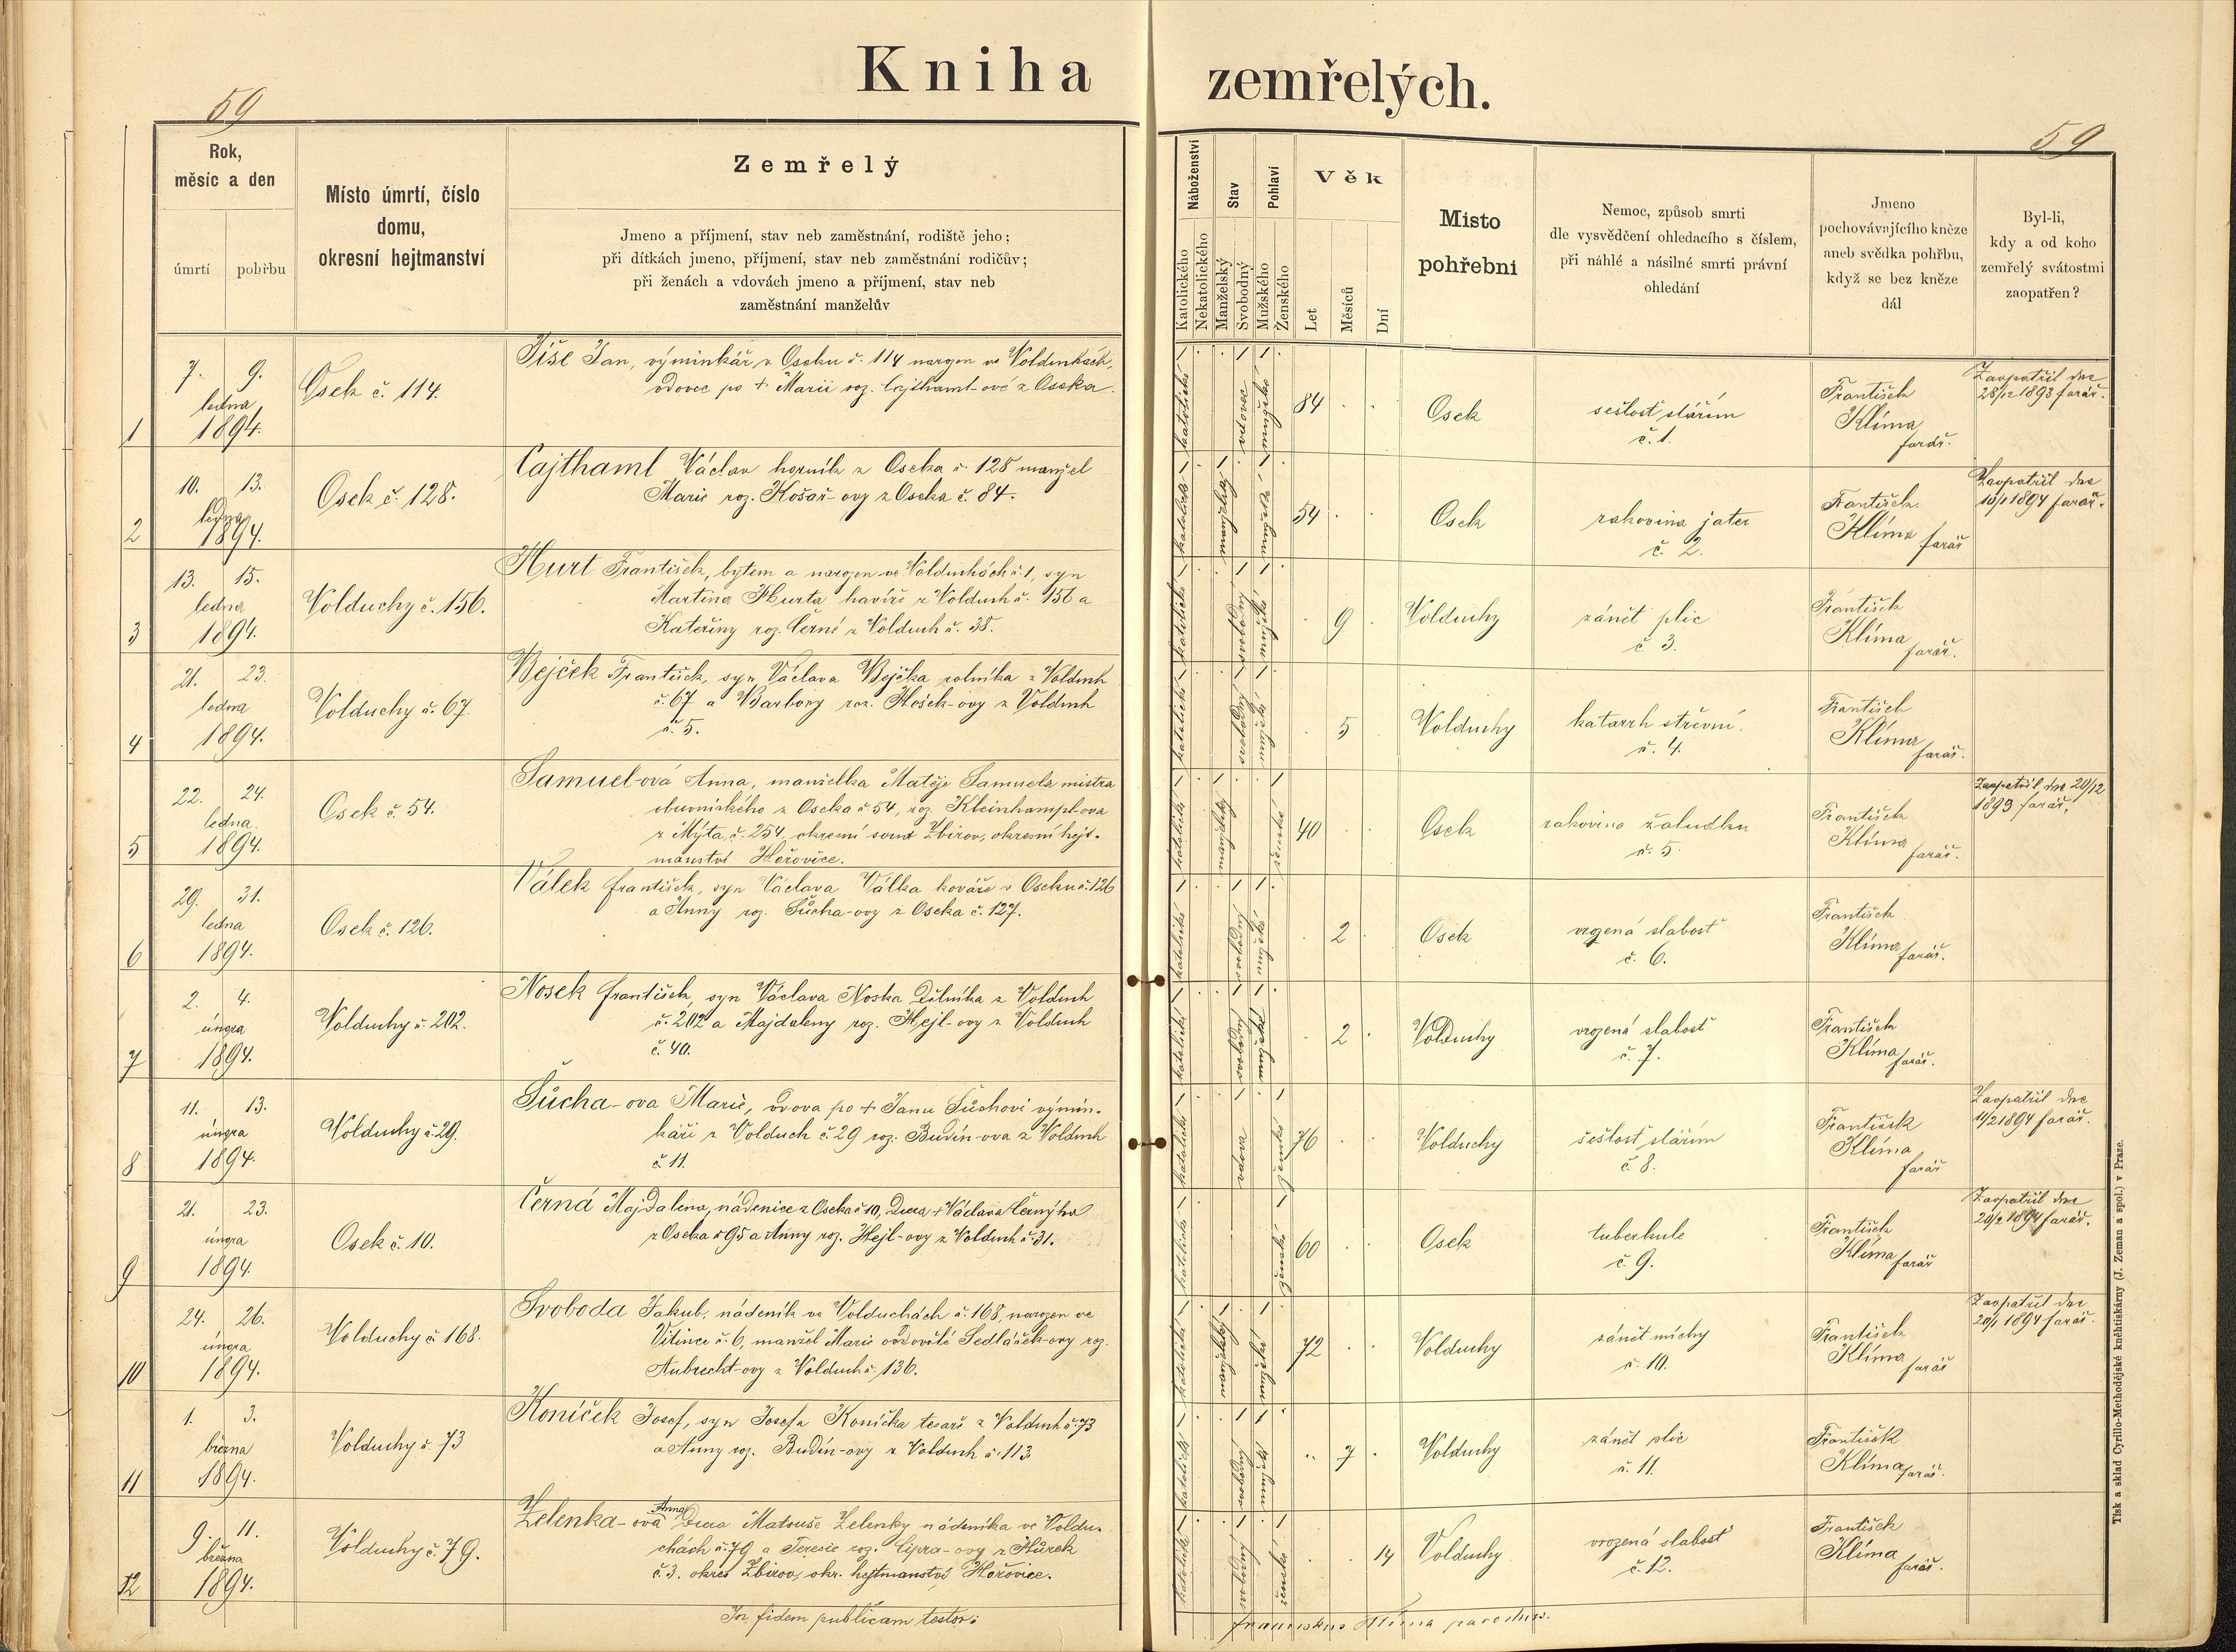 Kniha zemřelých.
59
59
Rok, měsíc a den
úmrtí
pohřbu
Místo úmrtí, číslo
domu,
okresní hejtmanství
Zemřelý
Jmeno a příjmení, stav neb zaměstnání, rodiště jeho;
při dítkách jmeno, příjmení, stav neb zaměstnání rodičův;
při ženách a vdovách jmeno a příjmení, stav neb
zaměstnání manželův
Náboženství
Katolického
Nekatolického
Stav
Manželský
Svobodný
Pohlaví
Mužského
Ženského
Věk
Let
Měsíců
Dní
Místo
pohřební
Nemoc, způsob smrti
dle vysvědčení ohledacího s číslem,
při náhlé a násilné smrti právní
ohledání
Jmeno
pochovávajícího kněze
aneb svědka pohřbu,
když se bez kněze
dál
Byl-li,
kdy a od koho
zemřelý svátostmi
zaopatřen?
1
7. 9.
ledna
1894.
Osek č. 114.
Jan, výminkář v Oseku č. 114 narozen ve
vdovec po + Marii roz. Cajthaml-ové z Oseka.
katolické
vdovec
mužské
84
Osek
sešlost stářím
č. 1.
František
Klíma
farář.
Zaopatřil dne
28/12 1893 farář.
2
10. 13.
ledna
1894.
Osek č. 128.
Cajthaml Václav horník z Oseka č. 128 manžel
Marie roz. Košař-ovy z Oseka č. 84.
katolické
manželský
mužské
54
Osek
rakovina jater
č. 2.
František
Klíma farář
Zaopatřil dne
10/1 1894 farář.
3
13. 15.
ledna
1894.
Volduchy č. 156.
Hurt František, bytem a narozen ve Volduchách č. 1, syn
Martina Hurta havíře z Volduch č. 156 a
Kateřiny roz. Černé z Volduch č. 38.
katolické
svobodný
mužské
9
Volduchy
zánět plic
č. 3.
František
Klíma
farář.
4
21. 23.
ledna
1894.
Volduchy č. 67.
Bejček František, syn Václava Bejčka rolníka z Volduch
č. 67 a Barbory roz. Hošek-ovy z Volduch
č. 5.
katolické
svobodný
mužské
5
Volduchy
katarrh střevní.
č. 4.
František
Klíma
farář.
5
22. 24.
ledna
1894.
Osek č. 54.
Samuel-ová Anna, manželka Matěje Samuela mistra
obuvnického z Oseka č 54, roz. Kleinhampl-ova
z Mýta, č. 254, okresní soud Zbirov, okresní hejt-
manství Hořovice.
katolické
manželský
ženské
40
Osek
rakovina žaludku
č. 5.
František
Klíma
farář.
Zaopatřil dne 20/12
1893 farář.
6
29. 31.
ledna
1894.
Osek č. 126.
Válek František, syn Václava Válka kováře v Oseku č. 126
a Anny roz. Sůcha-ovy z Oseka č. 127.
katolické
svobodný
mužské
2
Osek
vrozená slabost
č. 6.
František
Klíma farář.
7
2. 4.
února
1894.
Volduchy č. 202.
Nosek František, syn Václava Noska dělníka z Volduch
č. 202 a Majdaleny roz. Hejl-ovy z Volduch
č. 40.
katolické
svobodný
mužské
2
Volduchy
vrozená slabost
č. 7.
František
Klíma farář.
8
11. 13.
února
1894.
Volduchy č 29.
Sůcha-ova Marie, vdova po + Janu Sůchovi výmin-
káři z Volduch č. 29 roz. Budín-ova z Volduch
č. 11.
katolické
vdova
ženské
76
Volduchy
sešlost stářím
č 8.
František
Klíma
farář
Zaopatřil dne
11/2 1894 farář.
9
21. 23.
února
1894.
Osek č. 10.
Černá Majdalena, nádenice z Oseka č 10, dcera + Václava Černýho
z Oseka č 95 a Anny roz. Hejl-ovy z Volduch č. 31.
katolické
ženské
60
Osek
tuberkule
č. 9.
František
Klíma farář
Zaopatřil dne
20/2 1894 farář.
10
24. 26.
února
1894.
Volduchy č 168.
Svoboda Jakub, nádeník ve Volduchách č. 168, narozen ve
Vitince č. 6, manžel Marie ovdovělé Sedláček-ovy roz.
Aubrecht-ovy z Volduch č. 136.
katolické
manželský
mužské
72
Volduchy
zánět míchy
č. 10.
František
Klíma farář
Zaopatřil dne
20/1 1894 farář.
11
1. 3.
března
1894.
Volduchy č. 73
Koníček Josef, syn Josefa Koníčka tesaře z Volduch č. 73
a Anny roz. Budín-ovy z Volduch č. 113
katolické
svobodný
mužské
7
Volduchy
zánět plic
č. 11.
František
Klíma farář.
12
9. 11.
března
1894.
Volduchy č. 79.
Zelenka-ová Anna dcera Matouše Zelenky nádeníka ve Voldu-
chách č. 79 a Terezie roz. Cipra-ovy z Hůrek
č. 3. okres Zbirov, okr. hejtmanství Hořovice.
katolické
svobodný
ženské
14
Volduchy
vrozená slabost
č. 12.
František
Klíma
farář.
In fidem publicam testor:
Franciskus Klíma parochus.
Tisk a sklad Cyrillo-Methodějské kněhtiskárny (J. Zeman a spol.) v Praze.